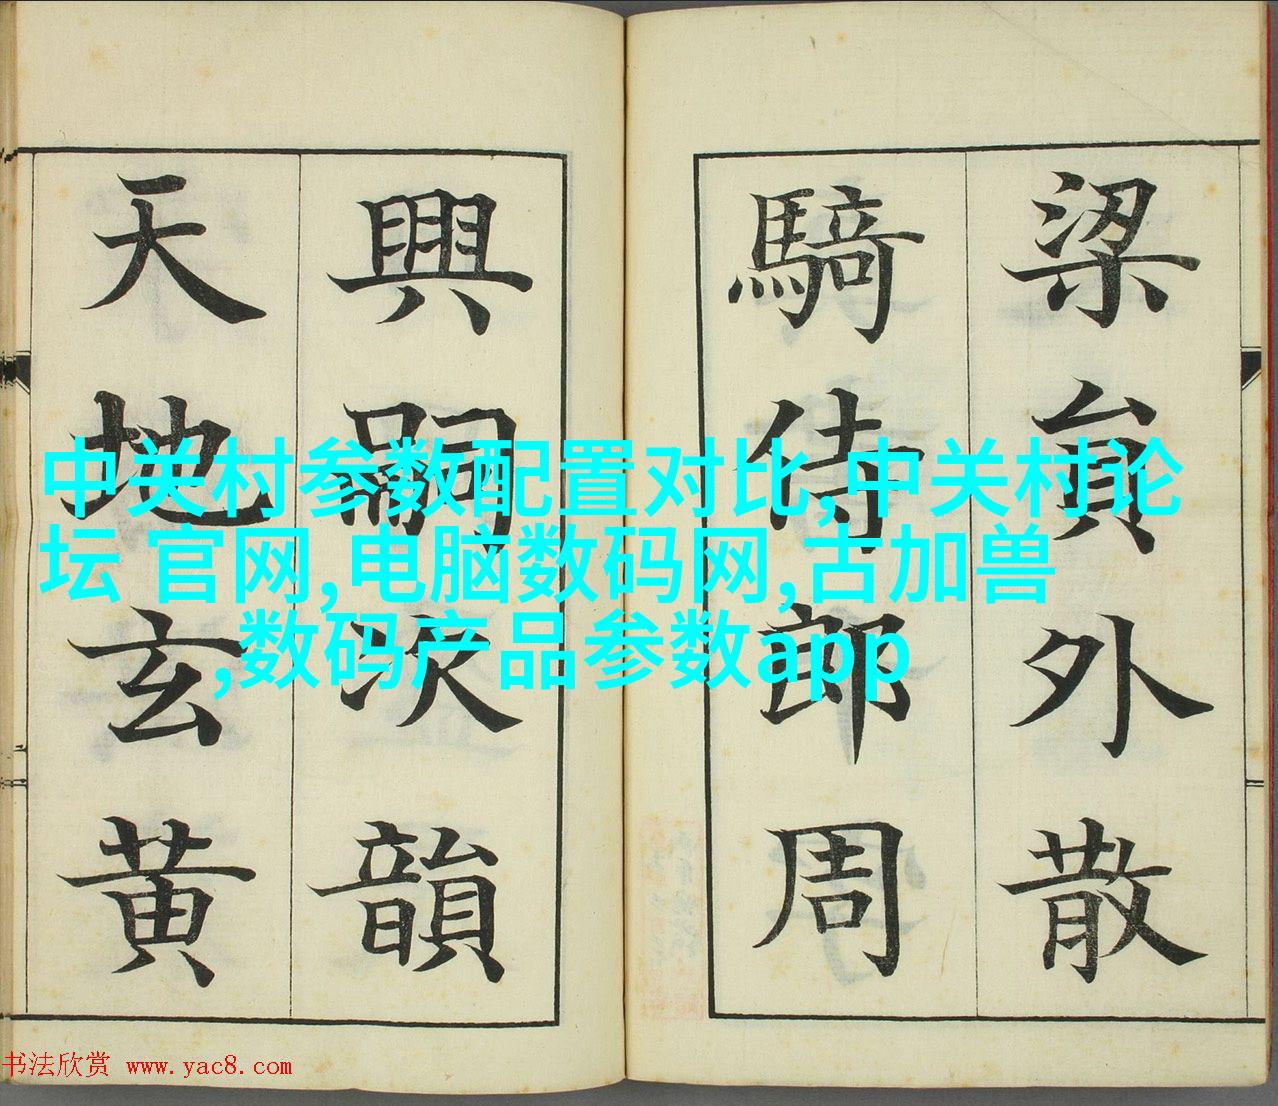 梁員外散
騎侍郎周
興嗣次韻
天地玄黄
中关村参数配置对比,中关村论
坛 官网,电脑数码网,古加兽
,数码产品参数app
书法欣赏 www.yac8.com